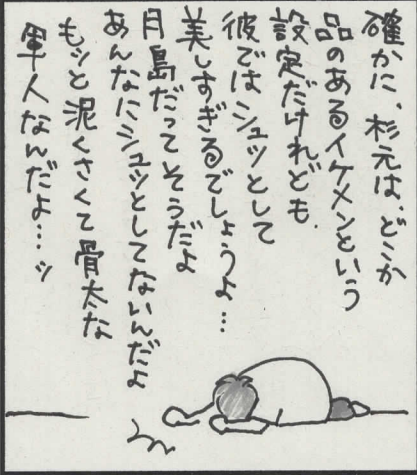 確かに、杉元は、どこか
品のあるイケメンという
設定だけれども、
彼ではシュッとして
美しすぎるでしょうよ…
月島だってそうだよ
あんなにシュッとしてないんだよ
もッと泥くさくて骨太な
軍人なんだよ…ッ